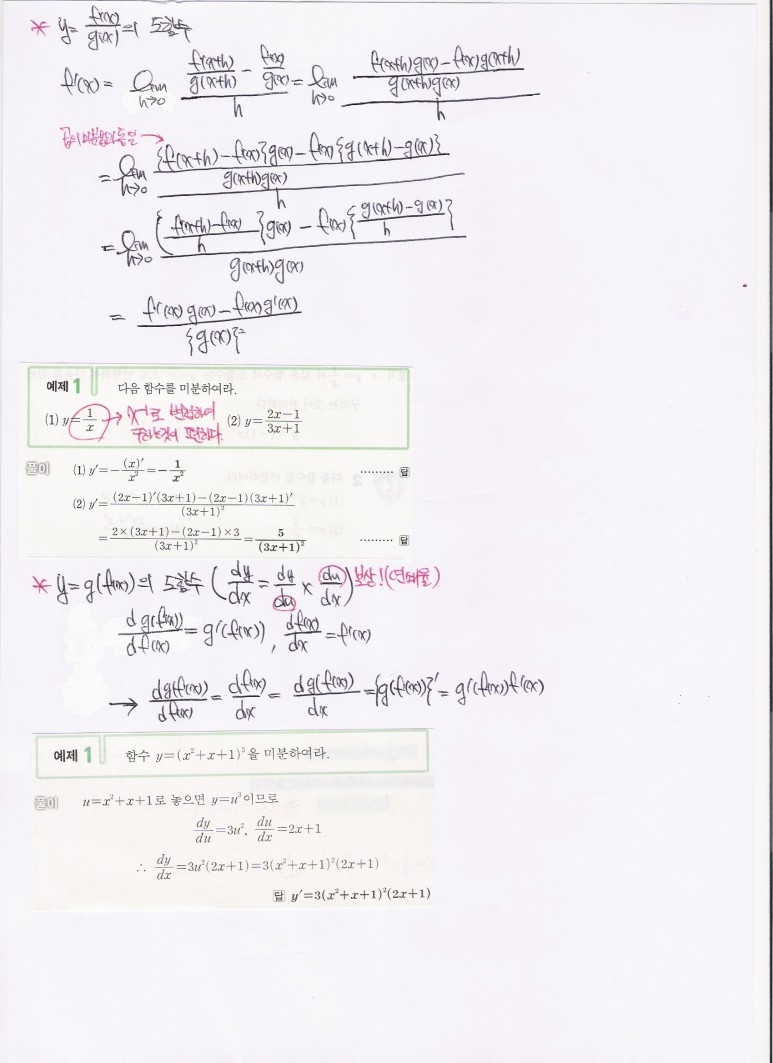 * y = f(x)/g(x) 의 도함수
f'(x) = lim h→0 (f(x+h)/g(x+h) - f(x)/g(x))/h = lim h→0 ((f(x+h)g(x) - f(x)g(x+h))/(g(x+h)g(x)))/h
곱의 미분법과 동일 →
= lim h→0 (({f(x+h) - f(x)}g(x) - f(x){g(x+h) - g(x)})/(g(x+h)g(x)))/h
= lim h→0 ({(f(x+h) - f(x))/h}g(x) - f(x){(g(x+h) - g(x))/h})/(g(x+h)g(x))
= (f'(x)g(x) - f(x)g'(x))/{g(x)}²
예제 1 다음 함수를 미분하여라.
(1) y = 1/x → x⁻¹로 변형하여 (2) y = (2x-1)/(3x+1)
구하는것이 편하다.
풀이 (1) y′ = -(x)′/x² = -1/x² ……… 답
(2) y′ = ((2x-1)′(3x+1) - (2x-1)(3x+1)′)/(3x+1)²
= (2×(3x+1) - (2x-1)×3)/(3x+1)² = 5/(3x+1)² ……… 답
* y = g(f(x))의 도함수 (dy/dx = dy/du × du/dx) 보상! (연쇄율)
dg(f(x))/df(x) = g'(f(x)), df(x)/dx = f'(x)
→ dg(f(x))/df(x) = df(x)/dx = dg(f(x))/dx = {g(f(x))}' = g'(f(x))f'(x)
예제 1 함수 y = (x²+x+1)³을 미분하여라.
풀이 u = x²+x+1로 놓으면 y = u³이므로
dy/du = 3u², du/dx = 2x+1
∴ dy/dx = 3u²(2x+1) = 3(x²+x+1)²(2x+1)
답 y′ = 3(x²+x+1)²(2x+1)